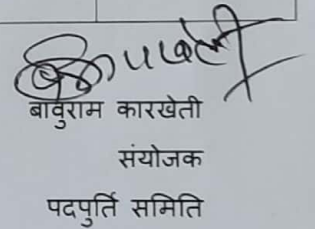 बावुराम कारखेती
संयोजक
पदपुर्ति समिति